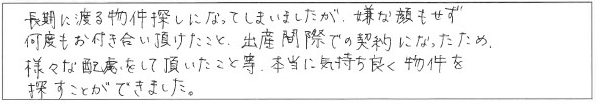 長期に渡る物件探しになってしまいましたが、嫌な顔もせず
何度もお付き合い頂けたこと、出産間際での契約になったため、
様々な配慮をして頂いたこと等、本当に気持ち良く物件を
探すことができました。